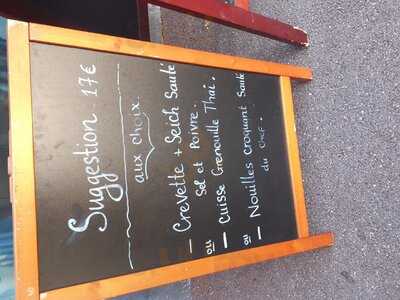 Suggestion 17€
aux choix
- Crevette + Seich Sauté
Sel et Poivre.
ou
- Cuisse Grenouille Thaï.
ou
- Nouilles Croquant Sauté
du Chef.